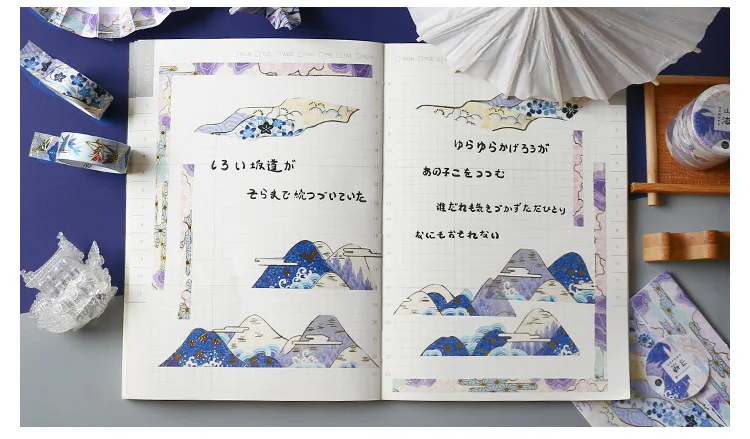 しろい坂道が
そらまで続つづいていた
ゆらゆらかげろうが
あの子こをつつむ
誰だれも気きづかずただひとり
なにもおそれない